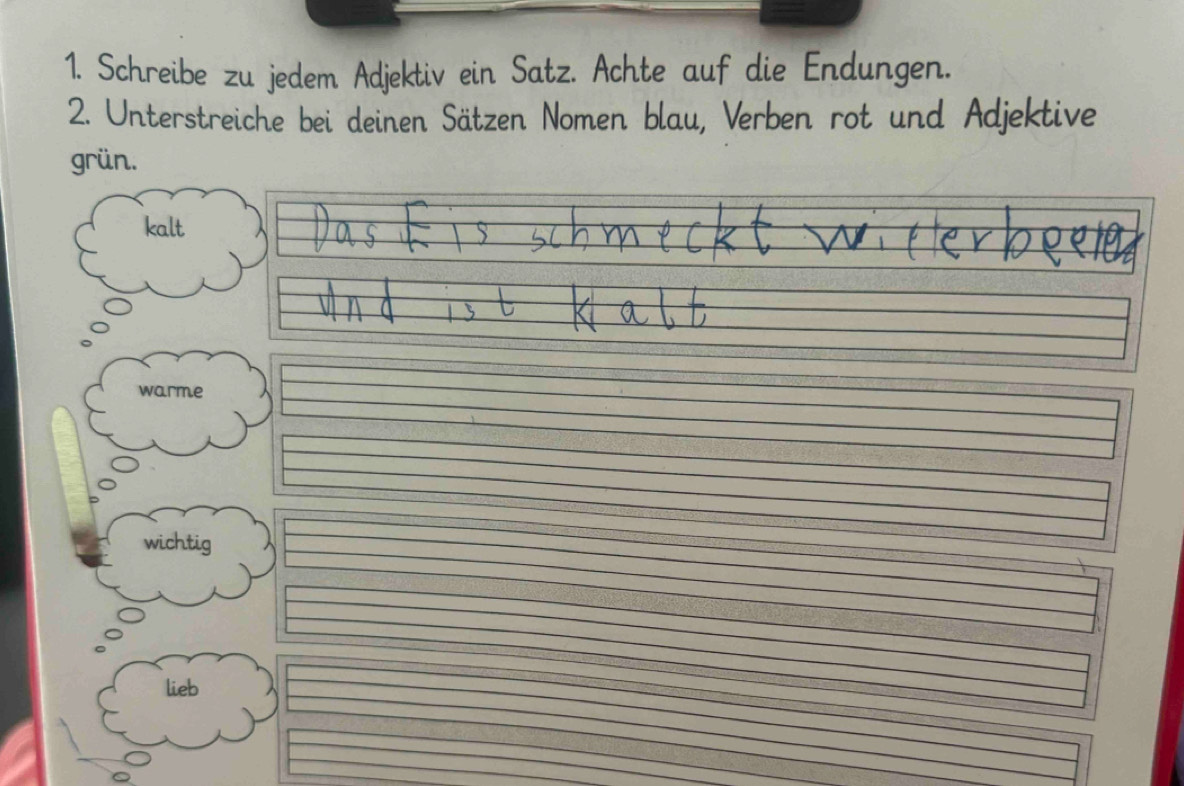 1. Schreibe zu jedem Adjektiv ein Satz. Achte auf die Endungen.
2. Unterstreiche bei deinen Sätzen Nomen blau, Verben rot und Adjektive
grün.
kalt
Das Eis schmeckt
und ist kalt
warme
wichtig
lieb